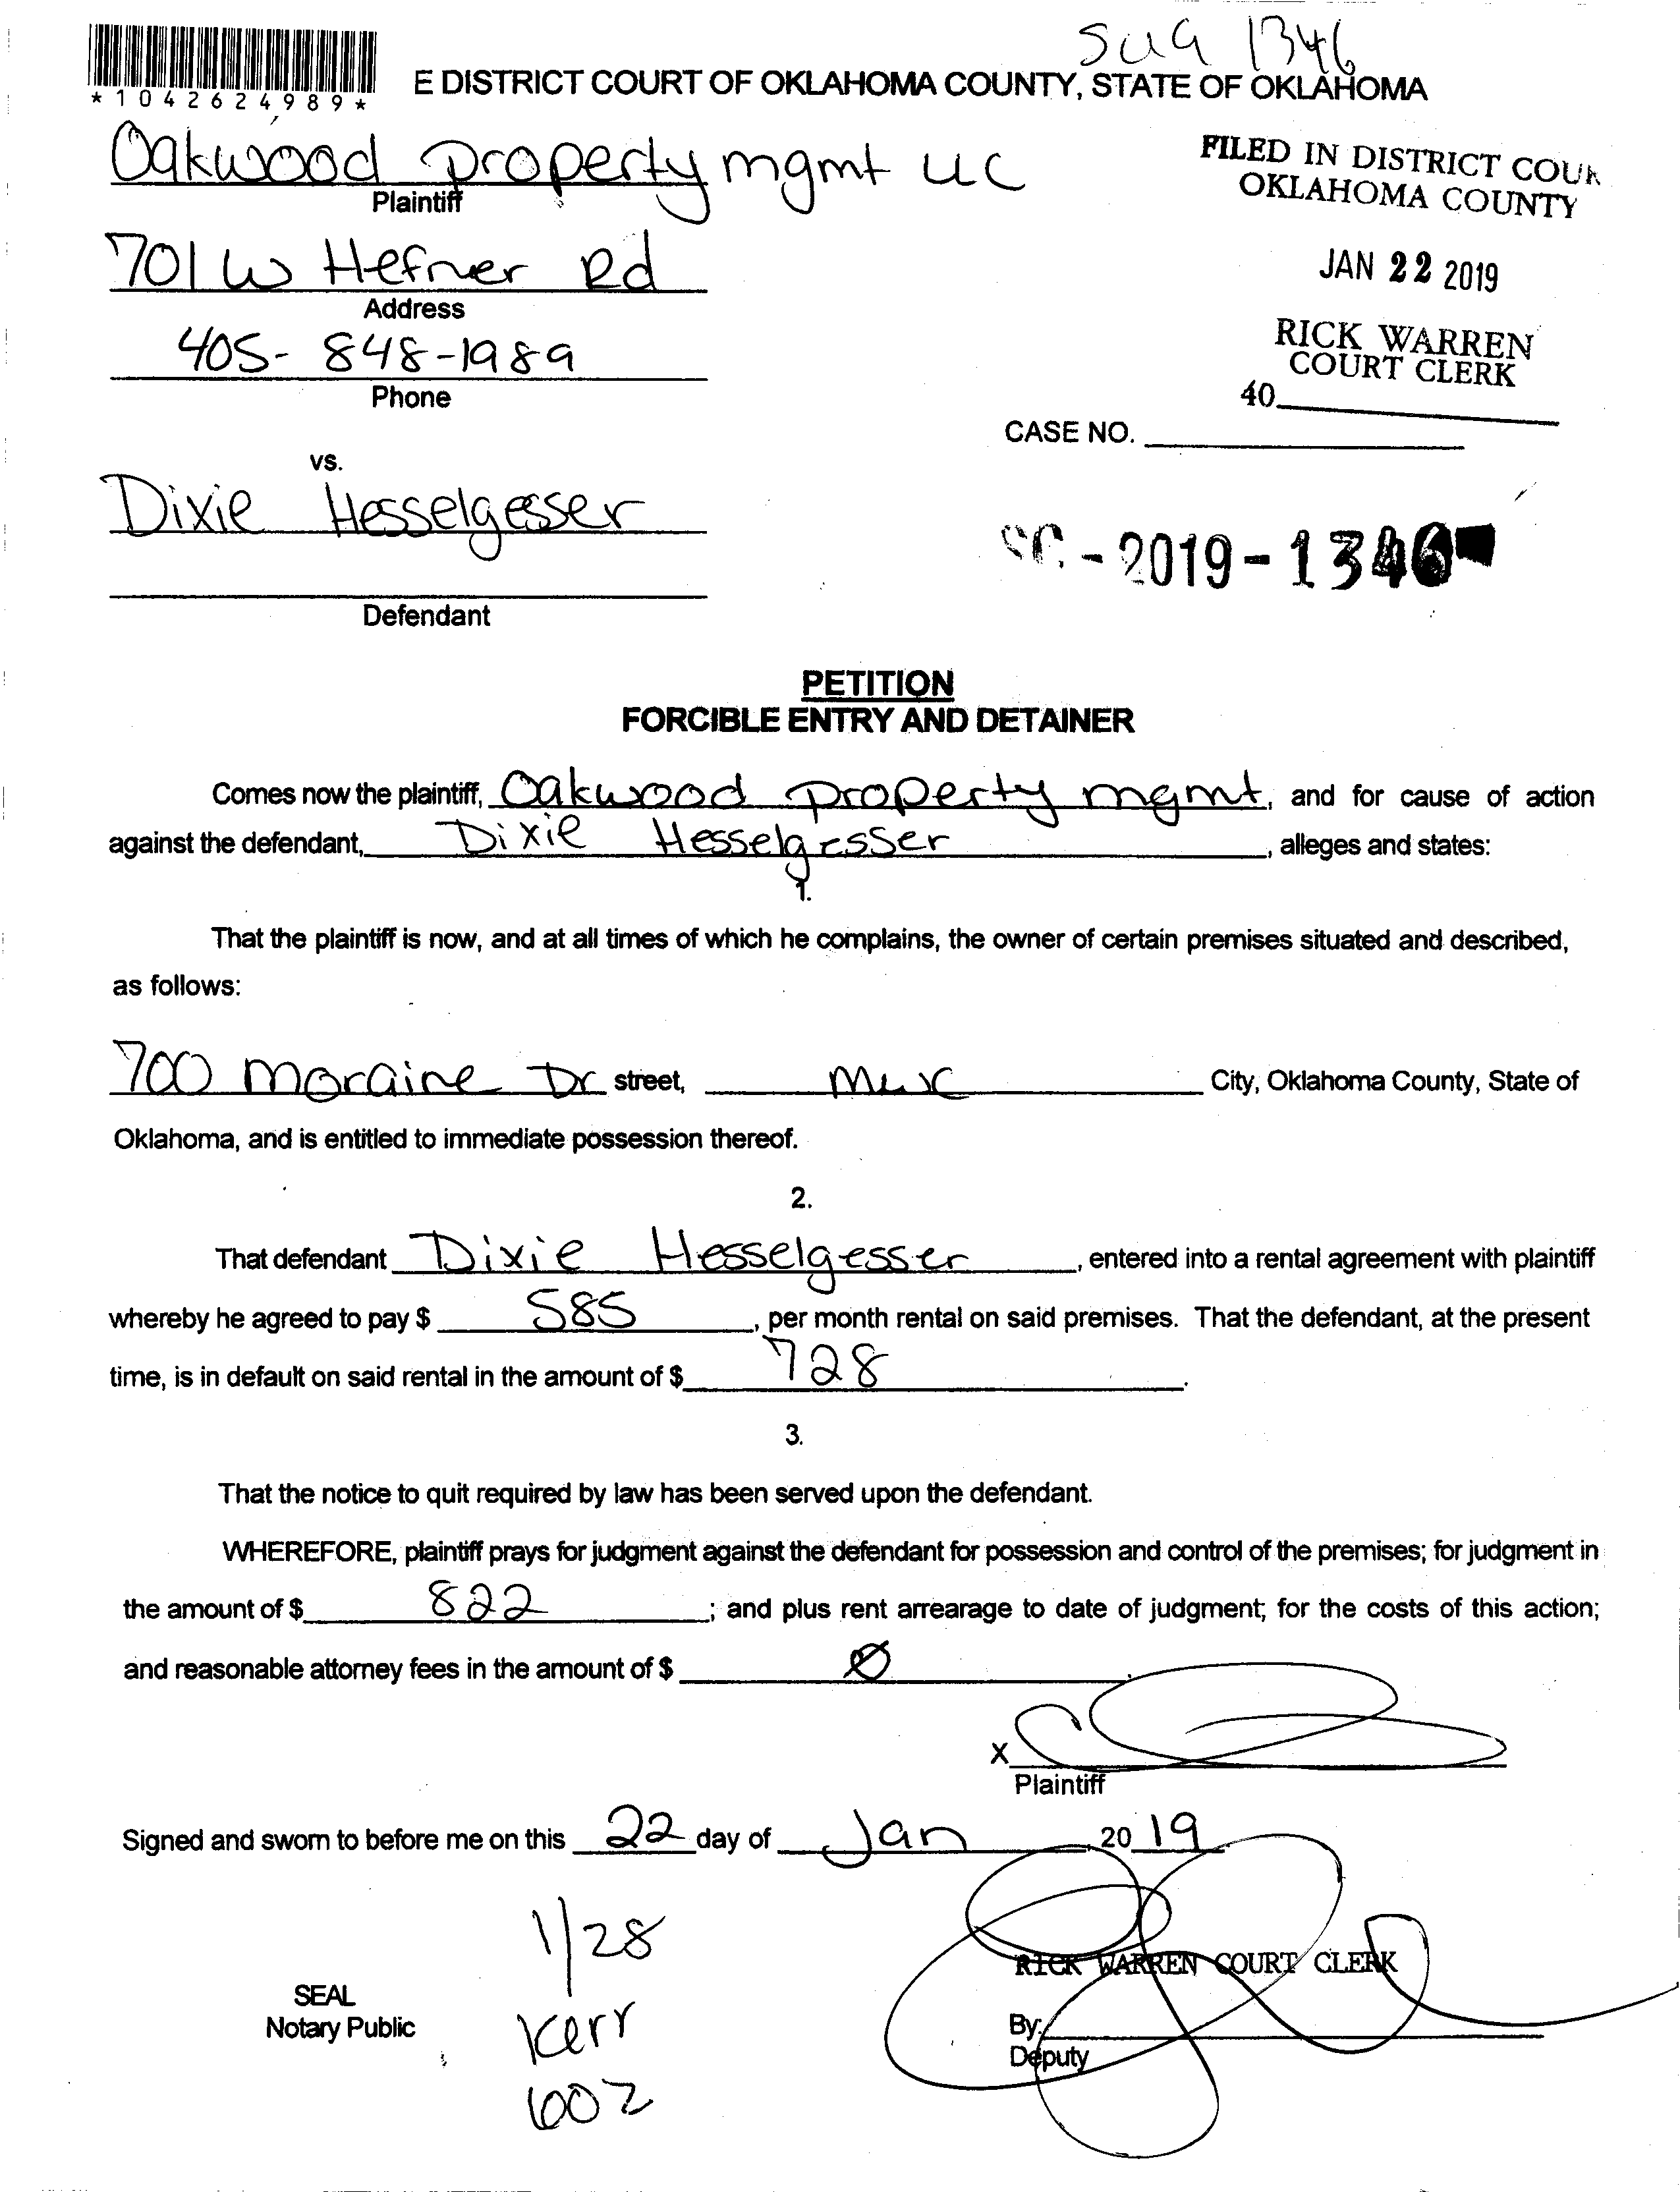 SC19 1346
*1042624989*
E DISTRICT COURT OF OKLAHOMA COUNTY, STATE OF OKLAHOMA
Oakwood property mgmt LLC
Plaintiff
FILED IN DISTRICT COUR
OKLAHOMA COUNTY
701 W Hefner Rd
Address
JAN 22 2019
405-848-1989
Phone
RICK WARREN
COURT CLERK
40
CASE NO.
vs.
Dixie Hesselgesser
SC-2019-1346
Defendant
PETITION
FORCIBLE ENTRY AND DETAINER
Comes now the plaintiff, Oakwood property mgmt, and for cause of action
against the defendant, Dixie Hesselgesser, alleges and states:
1.
That the plaintiff is now, and at all times of which he complains, the owner of certain premises situated and described,
as follows:
700 Moraine Dr street, City, Oklahoma County, State of
Oklahoma, and is entitled to immediate possession thereof.
2.
That defendant Dixie Hesselgesser, entered into a rental agreement with plaintiff
whereby he agreed to pay $ 585, per month rental on said premises. That the defendant, at the present
time, is in default on said rental in the amount of $ 728.
3.
That the notice to quit required by law has been served upon the defendant.
WHEREFORE, plaintiff prays for judgment against the defendant for possession and control of the premises; for judgment in
the amount of $ 822; and plus rent arrearage to date of judgment; for the costs of this action;
and reasonable attorney fees in the amount of $ Ø.
X
Plaintiff
Signed and sworn to before me on this 22 day of Jan, 2019
1/28
RICK WARREN COURT CLERK
SEAL
Notary Public
Kerr
By:
Deputy
602